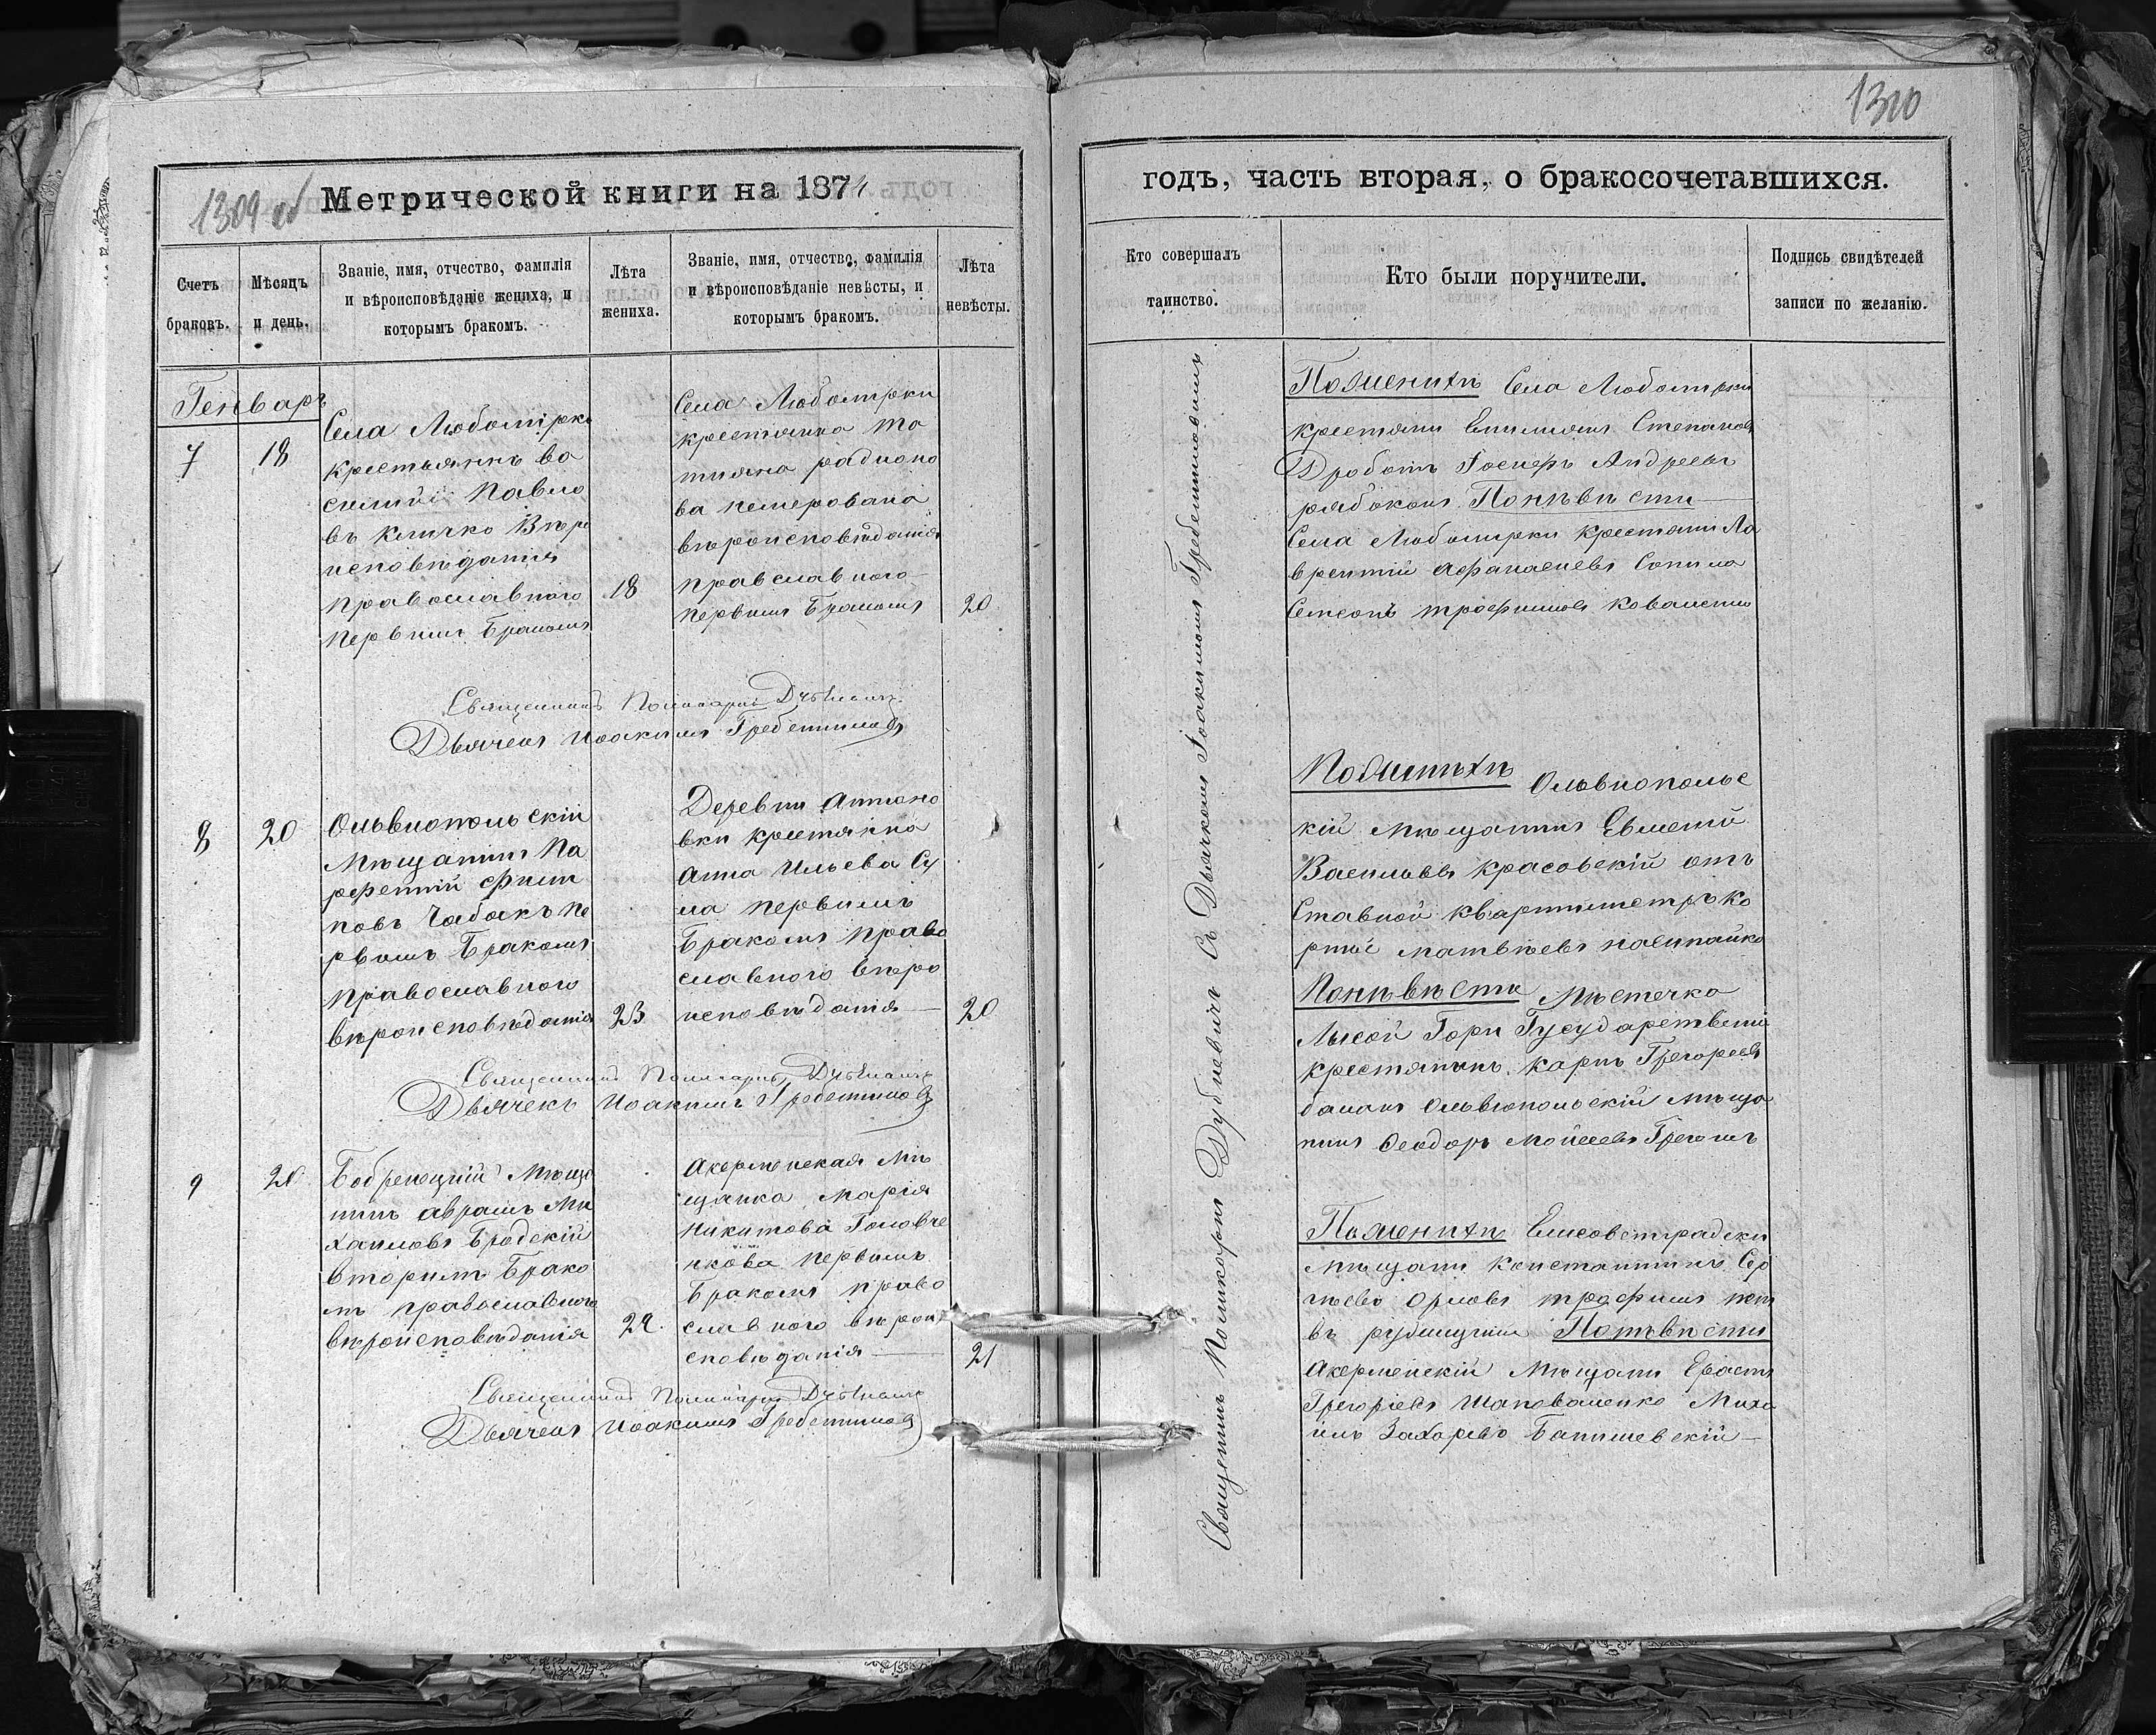 1309 об
Метрической книги на 1874
Счетъ
браковъ.
Мѣсяцъ
и день.
Званіе, имя, отчество, фамилія
и вѣроисповѣданіе жениха, и
которымъ бракомъ.
Лѣта
жениха.
Званіе, имя, отчество, фамилія
и вѣроисповѣданіе невѣсты, и
которымъ бракомъ.
Лѣта
невѣсты.
Генваръ
7
18
Села Любомірки
крестьянинъ Ва
силій Павло
въ Кличко Вѣро
исповѣданія
православного
первимъ Бракомъ
18
Села Любомірки
крестянка Та
тияна радионо
ва
вѣроисповѣданія
православного
первимъ Бракомъ
20
Священникъ Поликарпъ Дубневичъ
Дьячекъ Иоакимъ Гребенниковъ
8
20
Ольвиопольскій
Мѣщанинъ Па
рфеній Фили
повъ Чабакъ пе
рвымъ Бракомъ
Православного
вѣроисповѣданія
23
Деревни Антоно
вки крестянка
Анна Ильева Су
ла первимъ
Бракомъ право
славного вѣро
исповѣданія
20
Священникъ Поликарпъ Дубневичъ
Дьячекъ Иоакимъ Гребенниковъ
9
20
Бобренецкій Мѣща
нинъ аврамъ Ми
хаиловъ Бродскій
вторимъ Брако
мъ православного
вѣроисповѣданія
22
Акерменская Мѣ
щанка Марія
Никитова Головче
нкова первымъ
Бракомъ право
славного вѣрои
сповѣданія
21
Священникъ Поликарпъ Дубневичъ
Дьячекъ Иоакимъ Гребенниковъ
1310
годъ, часть вторая, о бракосочетавшихся.
Кто совершалъ
таинство.
Кто были поручители.
Подпись свидѣтелей
записи по желанію.
Священникъ Поликарпъ Дубневичъ Съ Дьячкомъ Іоакимомъ Гребенниковимъ
По женихѣ Села Любомірки
крестяни Емилианъ Степановъ
Дроботъ Іосифъ Андреевъ
рябоконь По невѣсти
Села Любомірки крестяни Ла
врентій Афанасиевъ Сопила
Семеонъ трофимовъ Коваленко
По женихѣ Ольвиопольс
кій мѣщанинъ Евменій
Васильевъ красовскій отъ
ставной квартимистръ ко
рній матвѣевъ пасичнико
По невѣсти Мѣстечко
Лысой Гори Гусударственій
крестянинъ карпъ Грегореевъ
баланъ Ольвіопольскій мѣща
нинъ Феодоръ Мойсеевъ
По женихи Елисоветградски
Мѣщани Константинъ Сер
гѣевъ Орловъ трофимъ пет
въ По невѣсти
Акерменскій Мѣщани Ерастъ
Грегоріевъ Шаповаленко Миха
илъ Захарево